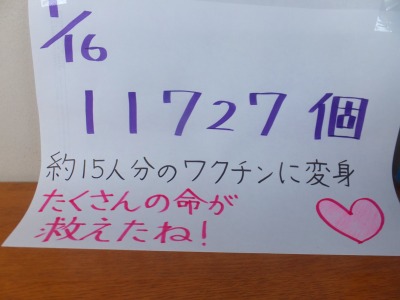 /16
11727個
約15人分のワクチンに変身
たくさんの命が
救えたね!